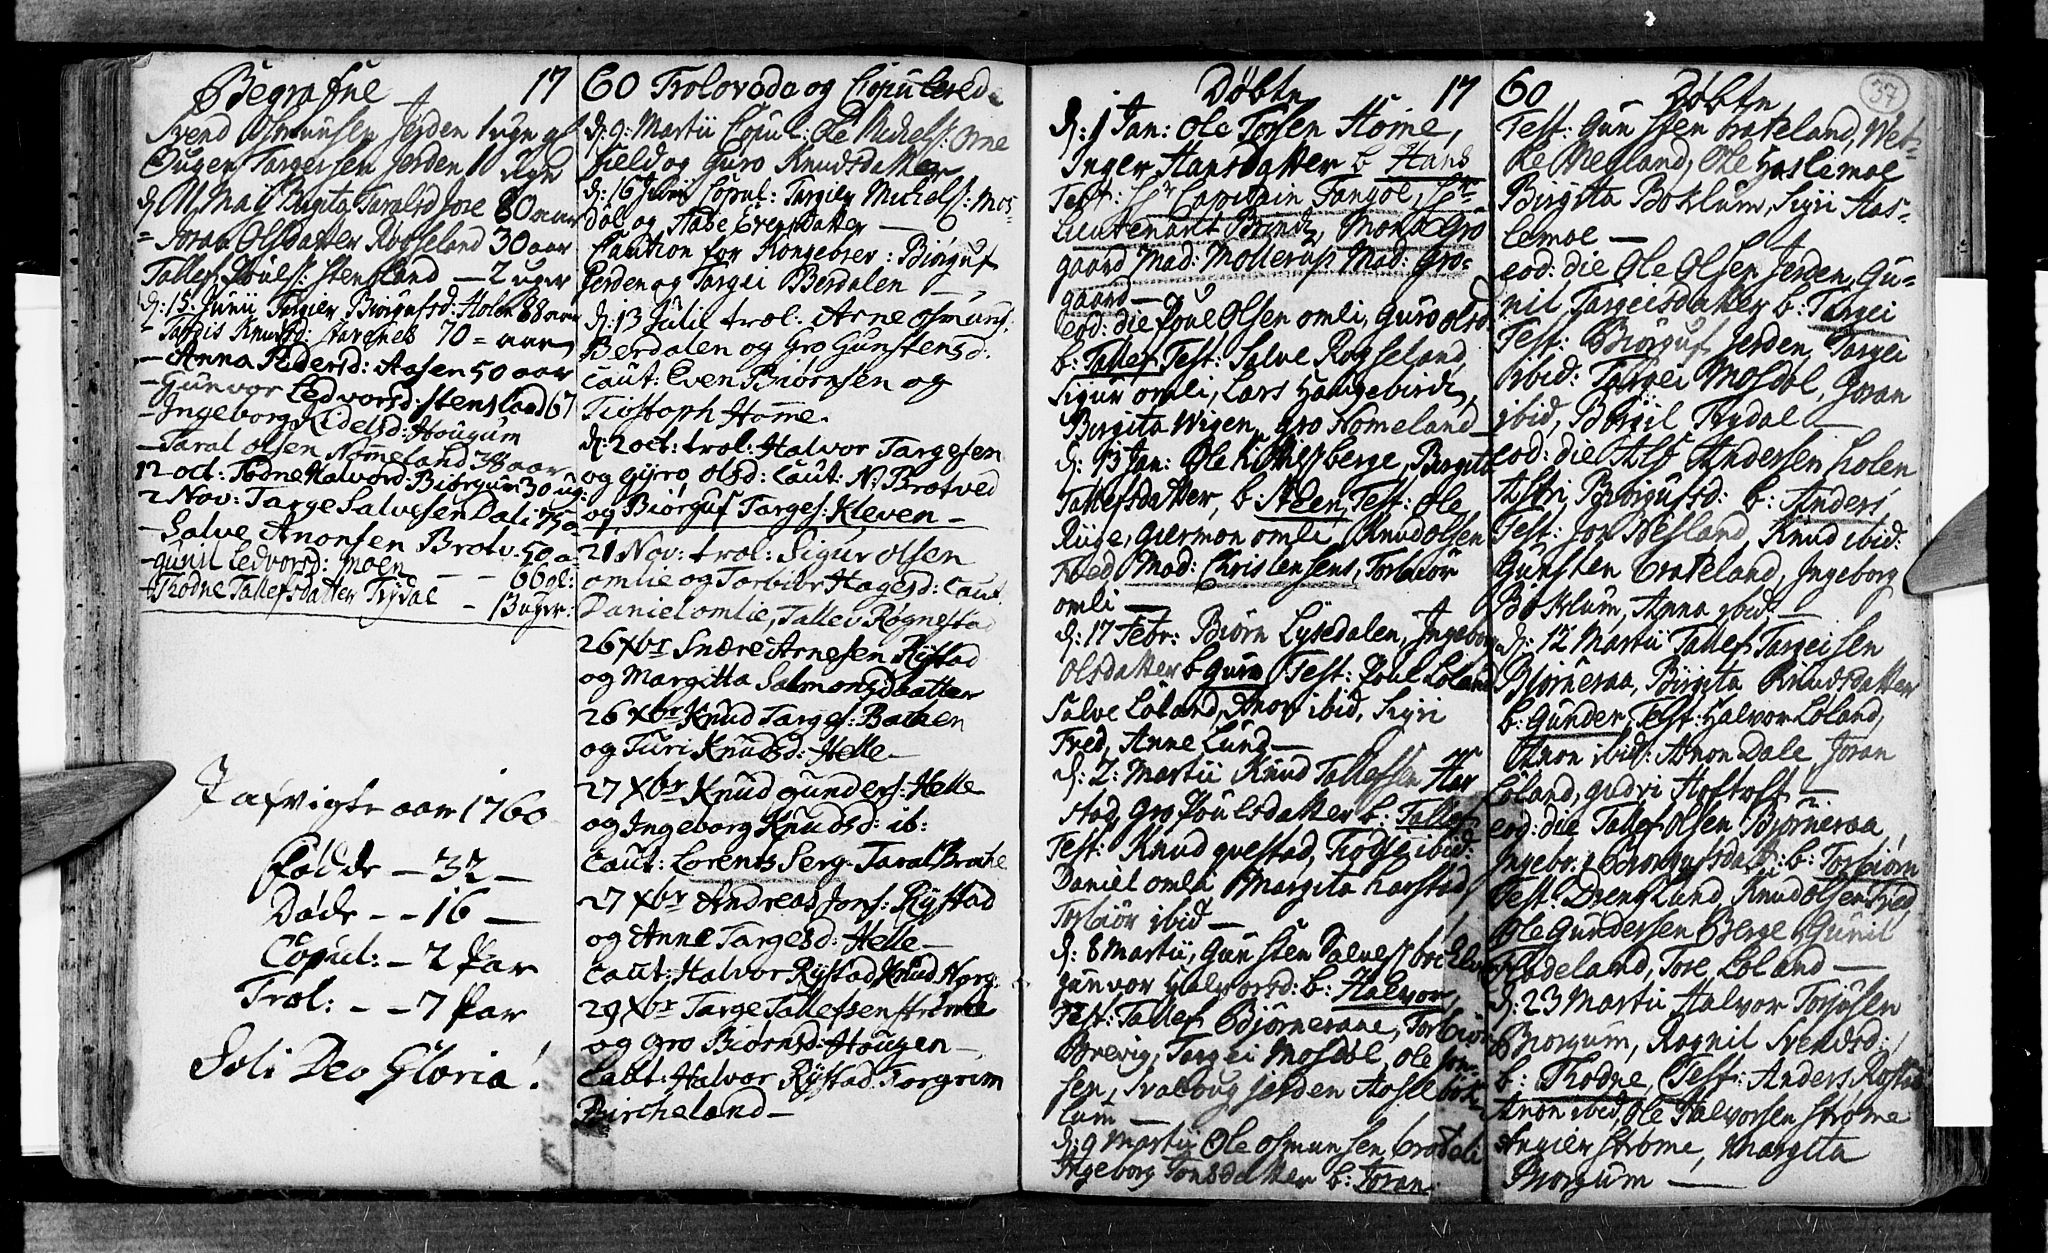 Begrafne 17
Svend Osmunsen Jerden 1 uge gl
Ougen Targersen Jerden 10 Uger
d. 11 Maii Birgita Taralsd Jose 80 aar
= Joran Olsdatter Røyseland 30 aar
Tallef Poulss: Stensland — 2 uger
d: 15 Junii Targier Biørgufsd: Holen 88 aar
- Targdis Knudsd: Harsnes 70 = aar
- Anna Pedersd: Aasen 50 aar
- Gunvor Ledvorsd: Stensland 67
- Ingeborg Kidelsd: Hougum
- Taral Olsen Nomeland 38 aar
12 oct: Todne Halvord Biørgum 30 ug:
2 Nov: Targe Salvesen Dali 75 a
- Salve Anonsen Brotv. 50 a
- Gunil Ledvorsd: Moen — - 66 gl:
- Thodne Tallefsdatter Trydal — 13 uger:
I afvigte aar 1760
Fødde — 32 —
Døde - - 16 —
Copul: — 2 Par
Trol: - - 7 Par
Soli Deo Gloria!
60 Trolovede og Copulerede
d. 9: Martii Copul: Ole Michelss: Orne
field og Guro Knudsdatter
d: 16 Junii Copul: Targier Michelss: Mos-
dol og Aase Evensdatter —
Caution for Kongeoser: Biørguf
Jerden og Targei Berdalen —
d: 13 Julii trol: Arne Osmunds:
Berdalen og Gro Gunstensd:
caut: Even Biørnsen og
Tiostoph Homme.
d: 2 oct: trol: Halvor Targesen
og Gyro Olsd: Caut: N: Brotved
og Biørguf Targes: Kleven —
21 Nov: trol: Sigur Olsen
Omlie og Torbiør Hagesd: Caut:
Daniel omlie, Tallev Røgnestad
26 Xbr Snære Arnesen Rystad
og Margitta Salmonsdaatter
26 Xbr Knud Targes: Backen
og Turi Knudsd: Helle —
27 Xbr Knud Gunders: Helle
og Ingeborg Knudsd: ib:
Caut: Lorents Serg. Taral Broche
27 Xbr Andreas Jons: Rystad
og Anne Targesd: Helle —
Caut: Halvor Rystad, Knud Harg
29 Xbr Targe Tallefsen Strømme
og Gro Biørnsd: Hougen —
Caut: Halvor Rystad. Torgrim
Bircheland —
Døbte 17
d: 1 Jan: Ole Tossen Home,
Inger Hansdatter b: Hans
Test: Hr Capitain Fangol, Hr
Lieutenant Brandt, Mons: Grø
gaard Mad: Mollerup Mad: Grø-
gaard —
eod: die Poul Olsen omli, Guro Olsd:
b: Tallef Test: Salve Rosseland,
Sigur omli, Lars Haugebirck,
Birgita Wigen, Gro Homeland —
d: 13 Jan: Ole Berge, Birgita
Tallefsdatter, b: Steen, Test: Ole
Riige, Giermon omli, Knud Olsen
Fred, Mad: Christensens, Torbiør
omli —
d: 17 Febr: Biørn Lysedalen, Ingeborg
Olsdatter b: Guro Test: Poul Loland
Salve Loland, Anon ibid, Siyri
Fred, Anne Lund —
d: 2: Martii Knud Tallefsen Har
stad, Gro Poulsdatter b: Tallef
Test: Knud Qvestad, Tiodse ibid:
Daniel omli Margita Harstad
Torbiør ibid —
d: 8 Martii, Gunsten Salvess:
Gunvor Halvorsd: b: Halvor
Test: Tallef Biørneraae, Torbiør
Brevig, Targei Mosdol, Ole Jon-
sen, Svaloug Jerden Aase Bok-
lum —
d: 9 Martii Ole Osmunsen Brodeli
Ingeborg Tonsdatter b: Joran.
60 Døbte 37
Test: Gunsten Brateland, Wet-
le Wegland, Ole Haslemoe
Birgita Boklum, Siyri Has-
lemoe —
eod: die Ole Olsen Jerden, Gu-
nil Targeisdatter b: Targei
Test: Biørguf Jerden, Targei
ibid: Targei Mosdol, Joran
ibid, Børgil Trydal —
eod: die Alf Andersen Holen
Astri Biørgufsd: b: Anders,
Test: Jon Besland, Knud ibid:
Gunsten Brateland, Ingeborg
Boklum, Anna ibid. —
d: 12 Martii Tallef Targeisen
Biørneraa, Birgita Knudsdatter
b: Gunder, Test: Halvor Loland,
Anon ibid: Anon Dale, Joran
Loland, Gudri Hoftoft —
eod: die Tallef Olsen Biørneraa
Ingebor b: Torbiørn
Test: Dreng Lund, Knud Olsen Fred
Ole Gundersen Berge, Gunil
Flodeland, Tore Loland —
d: 23 Martii Halvor Torjusen
Biorgum, Rognil Svendsd:
b: Thodne, Test: Anders Rystad
Anon ibid, Ole Halvorsen Strøme
Angier Strøme, Margita
Biorgum —